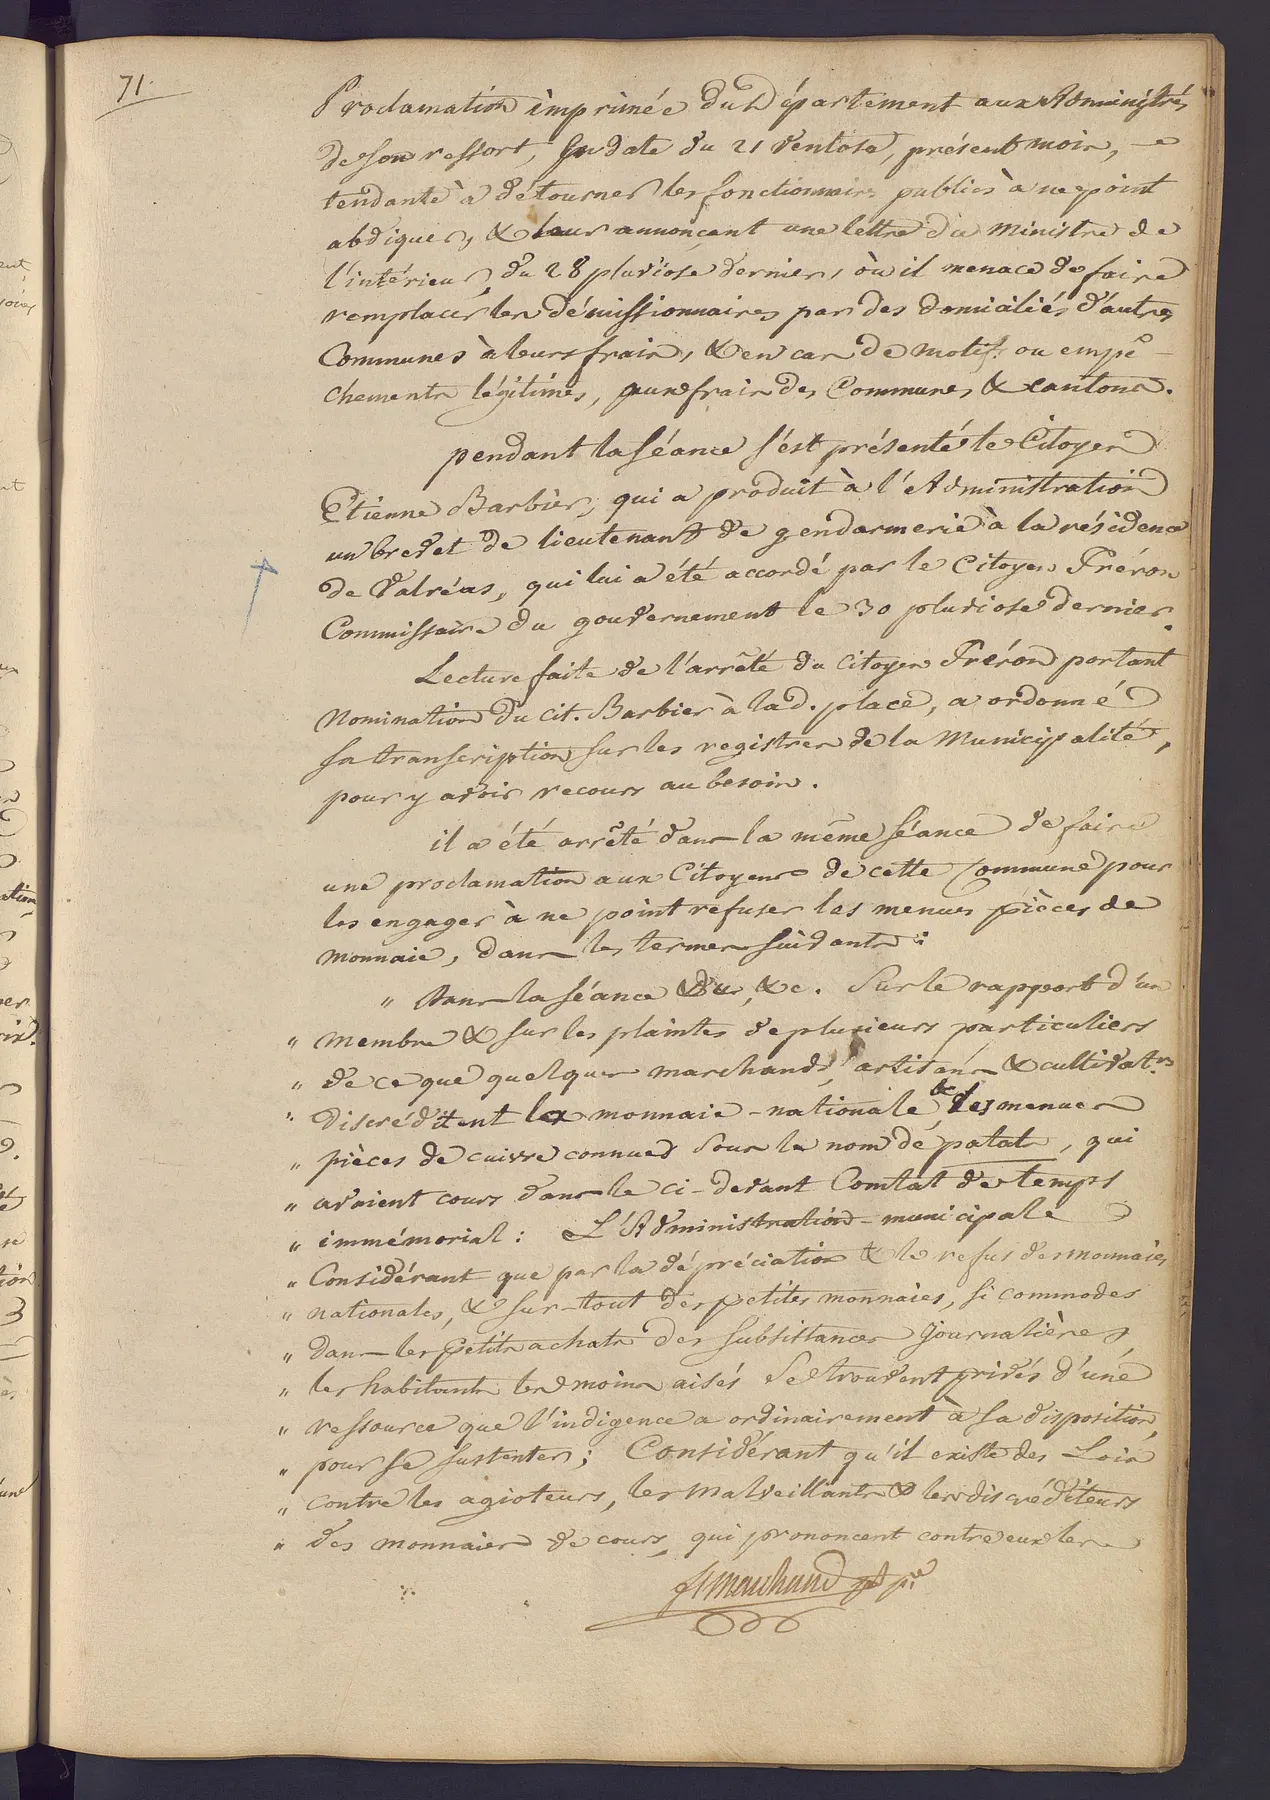 71.
Proclamation imprimée du Département aux Administrés
de son ressort, en date du 21 ventose, présent mois,
tendante à détourner les fonctionnaires publics à ne point
abdiquer, & leur annonçant une lettre du Ministre de
l'intérieur, du 28 pluviose dernier, où il menace de faire
remplacer les démissionnaires par des domiciliés d'autres
Communes à leurs frais, & en cas de motifs ou empê-
chements légitimes, aux frais des Communes & cantons.
pendant la séance s'est présenté le Citoyen
Etienne Barbier, qui a produit à l'Administration
un brevet de lieutenant de gendarmerie à la résidence
de Valréas, qui lui a été accordé par le Citoyen Fréron
Commissaire du gouvernement le 30 pluviose dernier.
Lecture faite de l'arrêté du citoyen Fréron portant
Nomination du cit. Barbier à lad. place, a ordonné
sa transcription sur les registres de la Municipalité,
pour y avoir recours au besoin.
il a été arrêté dans la même séance de faire
une proclamation aux Citoyens de cette Commune pour
les engager à ne point refuser les menues pièces de
monnaie, dans les termes suivants :
" dans la séance du, &c. Sur le rapport d'un
" membre & sur les plaintes de plusieurs particuliers
" de ce que quelques marchands, artisans & cultivat.rs
" discréditent la monnaie-nationale & les menues
" pièces de cuivre connues sous le nom de patats, qui
" avaient cours dans le ci-devant Comtat de temps
" immémorial : L'Administration-municipale
" Considérant que par la dépréciation & le refus des monnaies
" nationales, & sur-tout des petites monnaies, si commodes
" dans les petits achats des subsistances journalières
" les habitants les moins aisés se trouvent privés d'une
" ressource que l'indigence a ordinairement à sa disposition,
" pour se sustenter ; Considérant qu'il existe des Loix
" contre les agioteurs, les malveillants & les discréditeurs
" des monnaies de cours, qui prononcent contre eux les
marchand